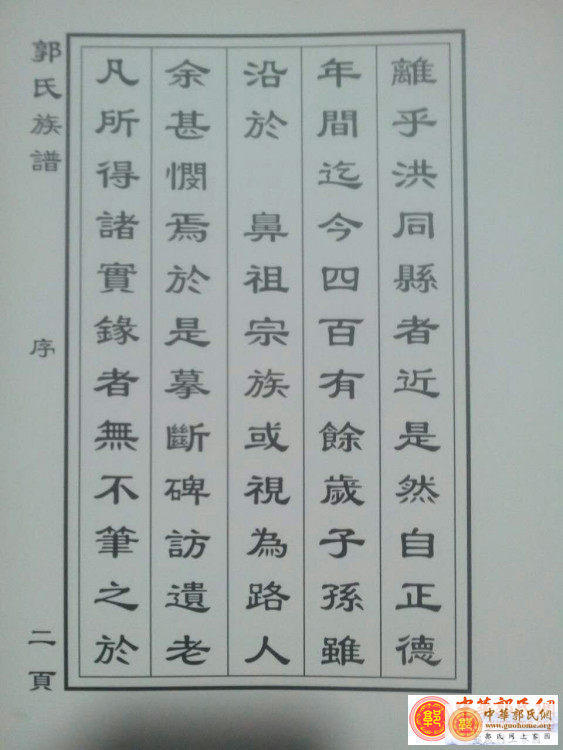 離乎洪同縣者近是然自正德
年間迄今四百有餘歲子孫雖
沿於　鼻祖宗族或視為路人
余甚憫焉於是摹斷碑訪遺老
凡所得諸實録者無不筆之於
郭氏族譜
序
二頁
中華郭氏網
中華郭氏網
www.guohome.org
郭氏网上家园